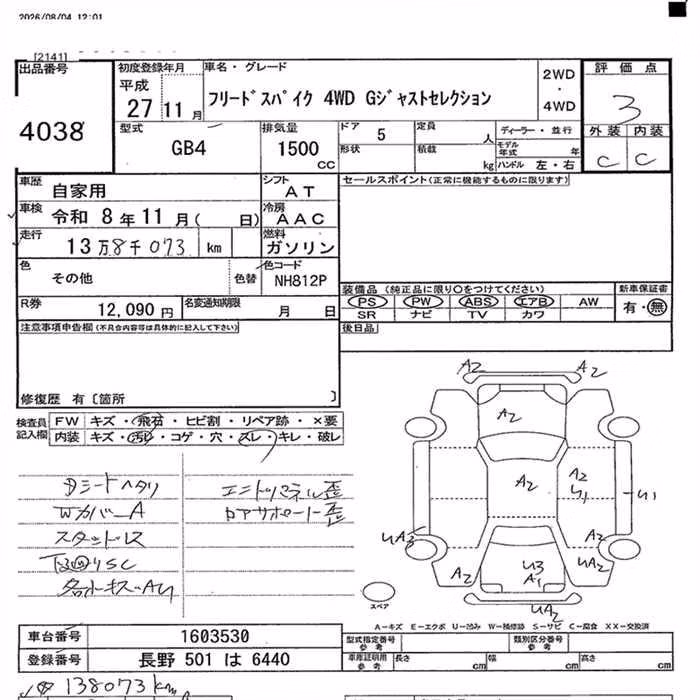 2026/08/04 12:01
[2141]
出品番号
4038
初度登録年月
平成
27 11 月
車名・グレード
フリードスパイク 4WD Gジャストセレクション
2WD
・
4WD
評価点
3
型式
GB4
排気量
1500
cc
ドア 5
形状
定員 人
積載 kg
ディーラー・並行
モデル年式 年
ハンドル 左・右
外装 内装
C C
車歴
自家用
シフト
AT
セールスポイント(正常に機能するものに限ります)
車検 令和 8年 11月( 日)
冷房
AAC
走行 13万8千073 km
燃料
ガソリン
色
その他
色替
色コード
NH812P
R券
12,090 円
名変通知期限
月 日
装備品(純正品に限り〇をつけてください)
PS PW ABS エアB AW
SR ナビ TV カワ
新車保証書
有・無
注意事項申告欄(不具合内容等は具体的に記入して下さい)
後日品
修復歴 有〔箇所 〕
検査員
記入欄
FW キズ・飛石・ヒビ割・リペア跡・×要
内装 キズ・汚れ・コゲ・穴・スレ・キレ・破レ
Dシートヘタリ
WカバーA
スタッドレス
下回りSC
エンドパネル歪
ロアサポート歪
A2
A2
A2
A2
A2
U1
U1
UA3
A2
UA2
A2
U3
A1
UA2
スペア
A-キズ E-エクボ U-凹み W-補修跡 S-サビ C-腐食 XX-交換済
車台番号 1603530
登録番号 長野 501 は 6440
型式指定番号
参考
類別区分番号
参考
車庫証明用
参考
長さ cm
幅 cm
高さ cm
138073km